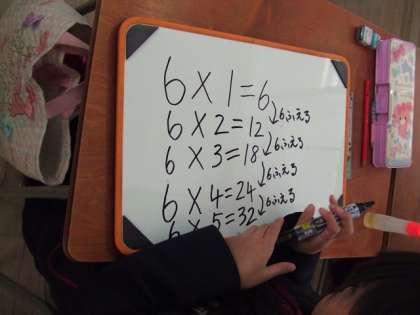 6×1=6
6ふえる
6×2=12
6ふえる
6×3=18
6ふえる
6×4=24
6ふえる
6×5=32